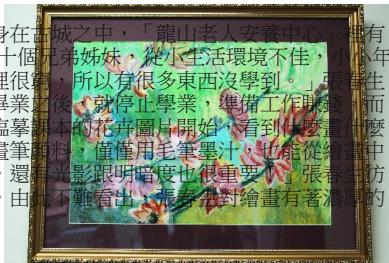 身在古城之中，「龍山老人安養中心」
十個兄弟姊妹，從小生活環境不佳，小小年
裡很窮，所以有很多東西沒學到。」張春生
畢業以後，就停止學業，準備工作賺錢，而
臨摹課本的花卉圖片開始，看到什麼畫什麼
畫筆顏料，僅僅用毛筆墨汁，也能從繪畫中
，還有光影跟明暗度也很重要。」張春生彷
。由此不難看出，張春生對繪畫有著濃厚的